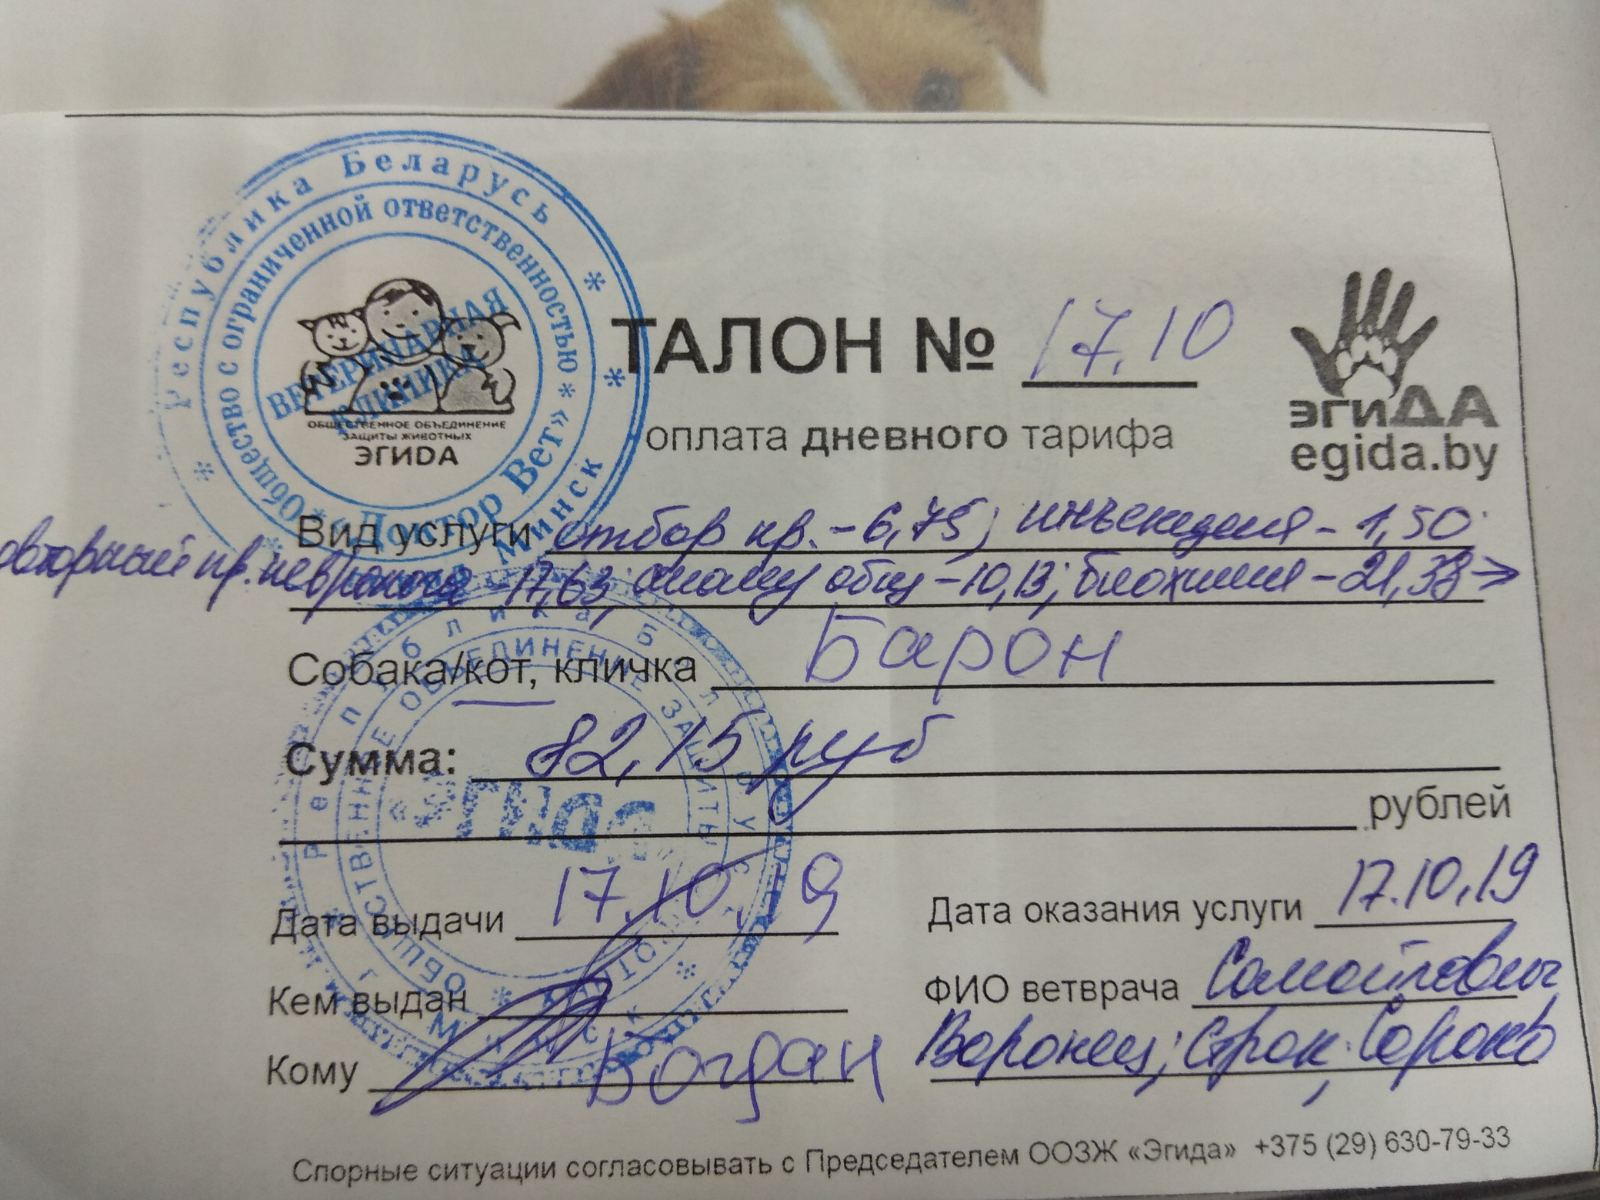 Республика Беларусь
Общество с ограниченной ответственностью
«Доктор Вет»
Минск
ВЕТЕРИНАРНАЯ
КЛИНИКА
ОБЩЕСТВЕННОЕ ОБЪЕДИНЕНИЕ
ЗАЩИТЫ ЖИВОТНЫХ
ЭГИДА
ТАЛОН № 17.10
оплата дневного тарифа
ЭГИДА
egida.by
Вид услуги отбор кр. - 6,75; инъекция - 1,50
пр. невролога - 17,63; общ - 10,13; биохимия - 21,38 →
Собака/кот, кличка Барон
Сумма: 82,15 руб
рублей
Дата выдачи 17.10.19
Дата оказания услуги 17.10.19
Кем выдан
ФИО ветврача Самойловыч
Кому Богдан
Воронец; Строк; Сороко
Эгида
Спорные ситуации согласовывать с Председателем ООЗЖ «Эгида» +375 (29) 630-79-33